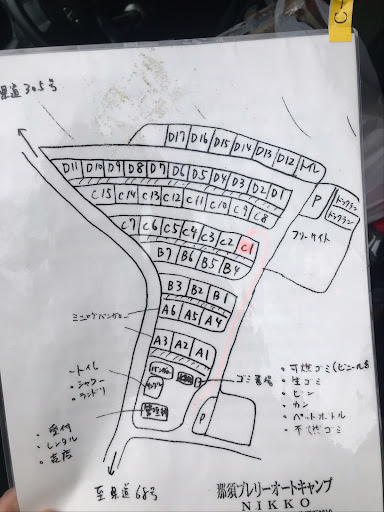 C-
県道305号
D17 D16 D15 D14 D13 D12 トイレ
D11 D10 D9 D8 D7 D6 D5 D4 D3 D2 D1
P
ドッグラン
ドッグラン
C15 C14 C13 C12 C11 C10 C9 C8
フリーサイト
C7 C6 C5 C4 C3 C2 C1
B7 B6 B5 B4
B3 B2 B1
ミニログバンガロー
A6 A5 A4
A3 A2 A1
・トイレ
・シャワー
・ランドリ
バンガロー
管理棟
P
ゴミ置場
・可燃ゴミ(ビニールき
・生ゴミ
・ビン
・カン
・ペットボトル
・不燃ゴミ
・受付
・レンタル
・売店
至県道68号
那須プレリーオートキャンプ
NIKKO